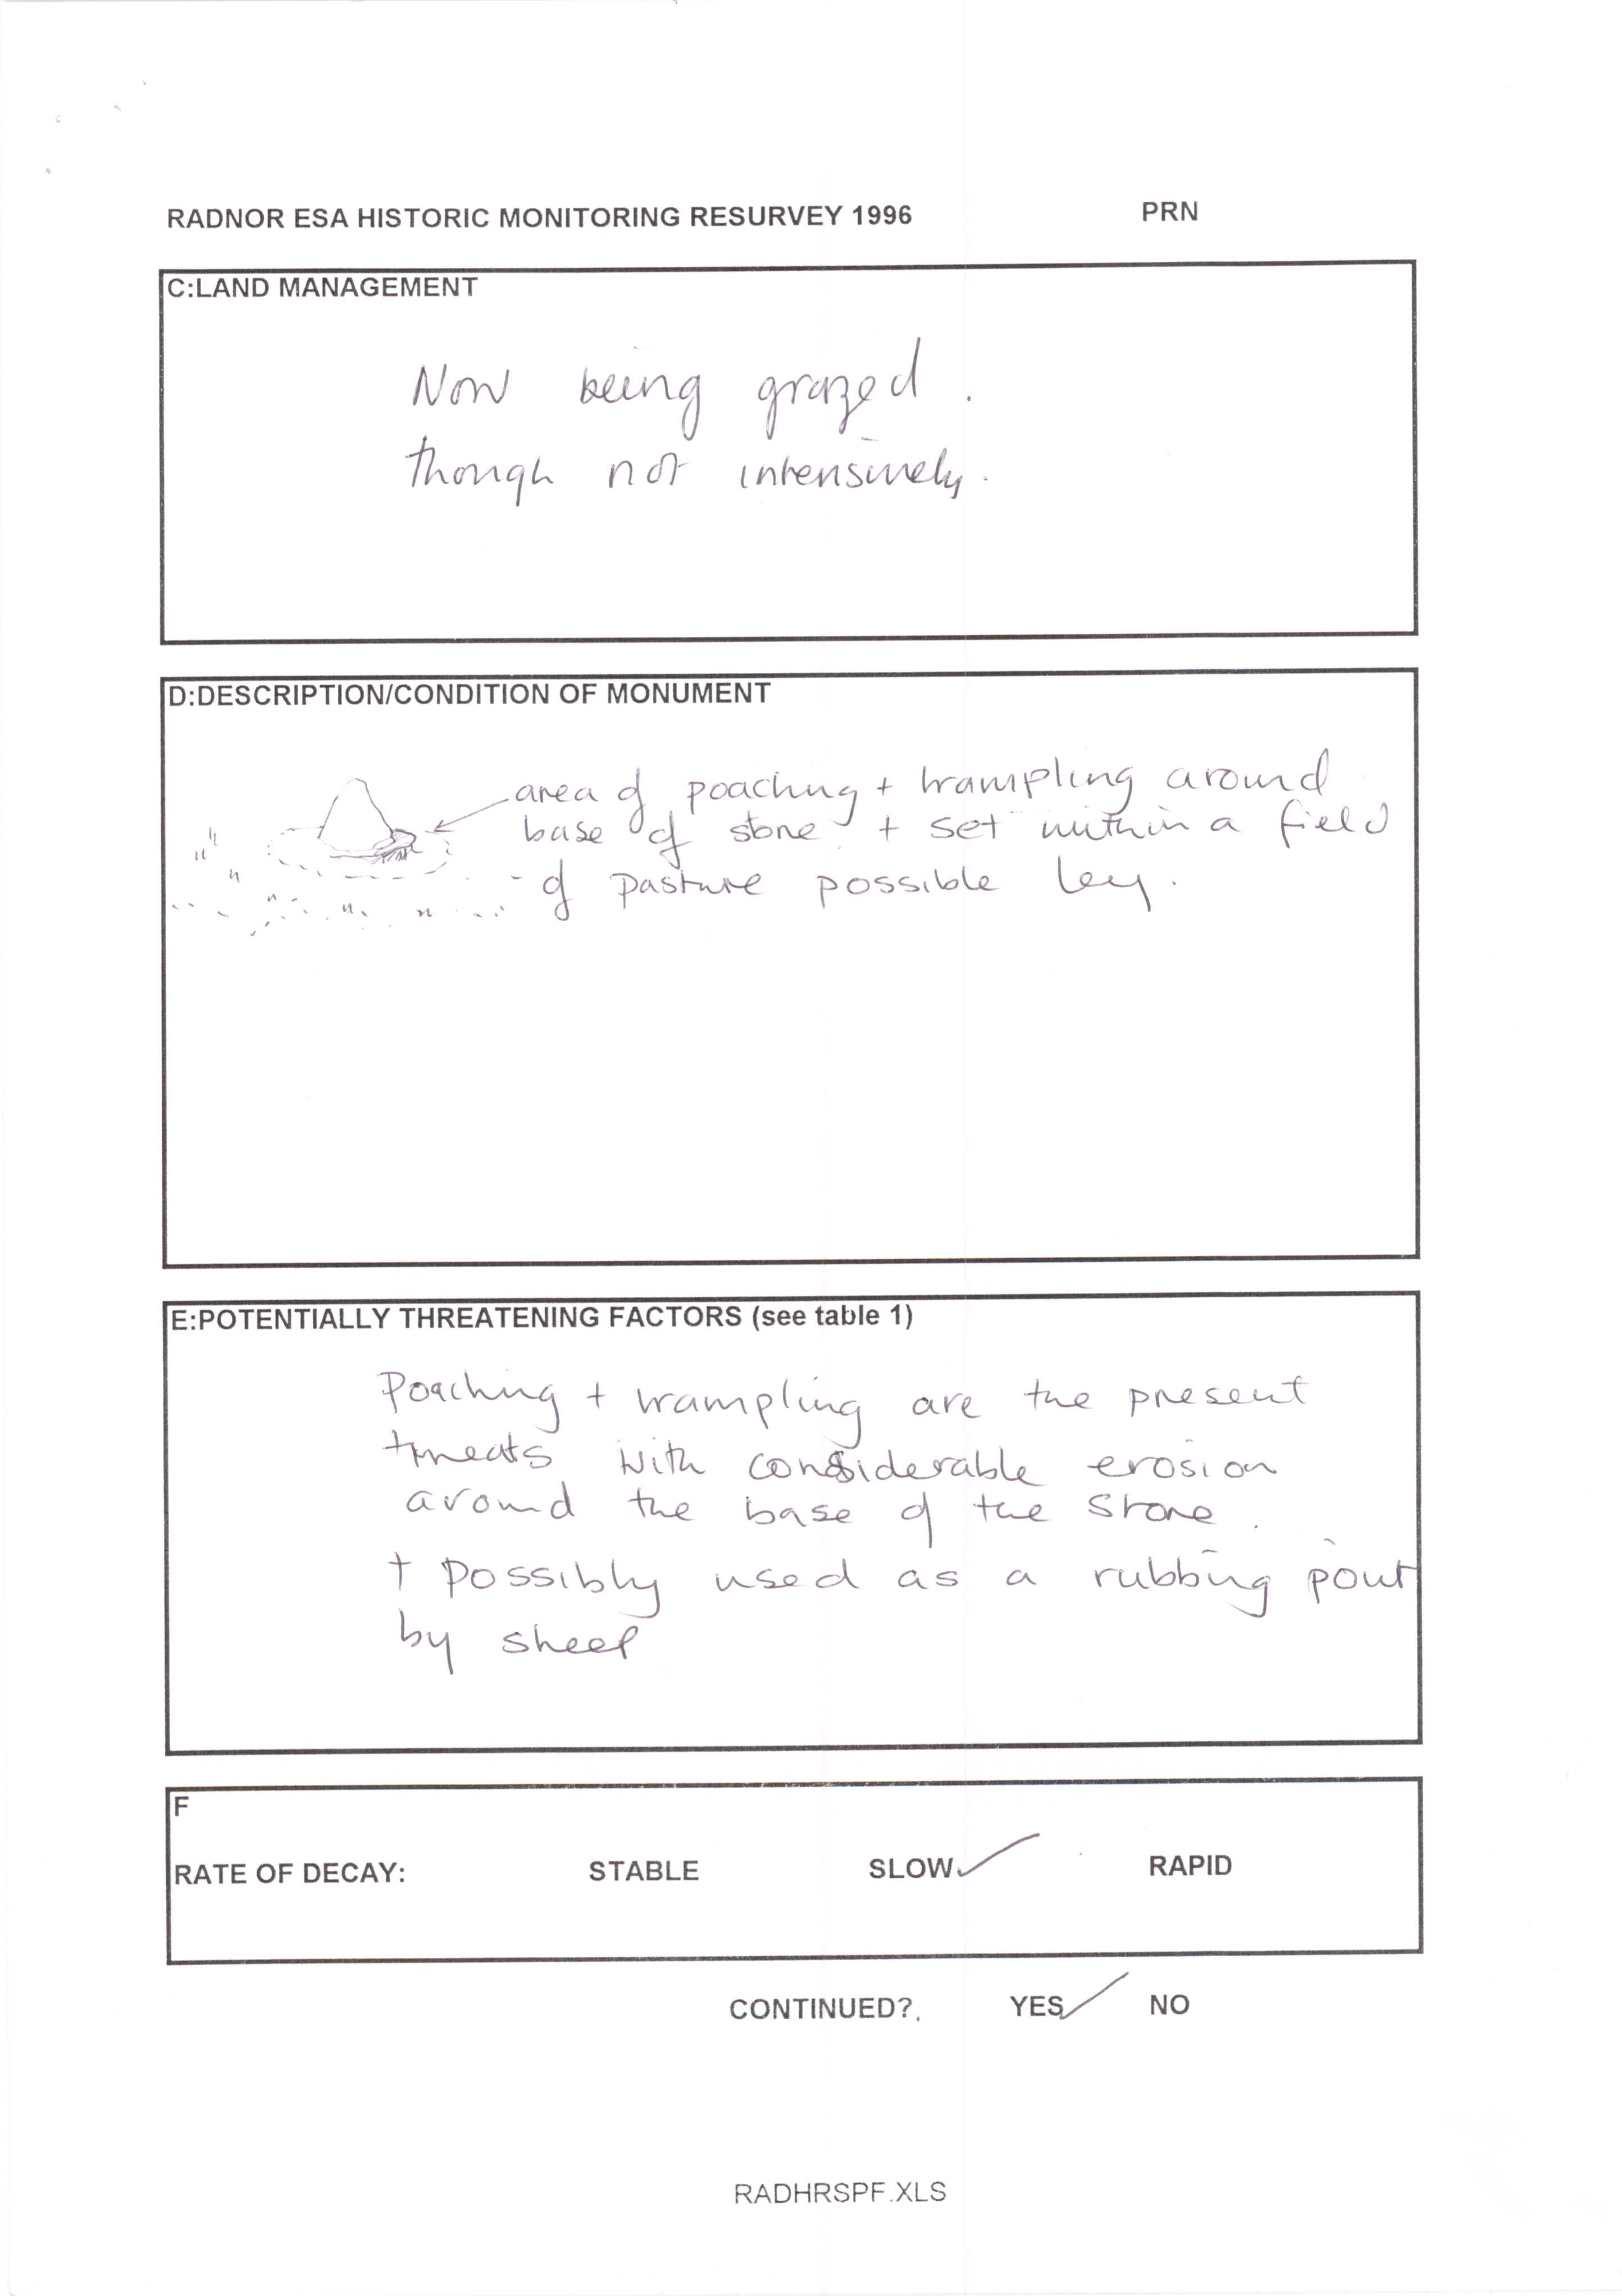 RADNOR ESA HISTORIC MONITORING RESURVEY 1996 PRN
C:LAND MANAGEMENT
Now being grazed.
though not intensively.
D:DESCRIPTION/CONDITION OF MONUMENT
area of poaching + trampling around
base of stone + set within a field
of pasture possible ley.
E:POTENTIALLY THREATENING FACTORS (see table 1)
Poaching + trampling are the present
threats with considerable erosion
around the base of the stone.
+ possibly used as a rubbing point
by sheep
F
RATE OF DECAY: STABLE SLOW ✓ RAPID
CONTINUED?. YES ✓ NO
RADHRSPF.XLS